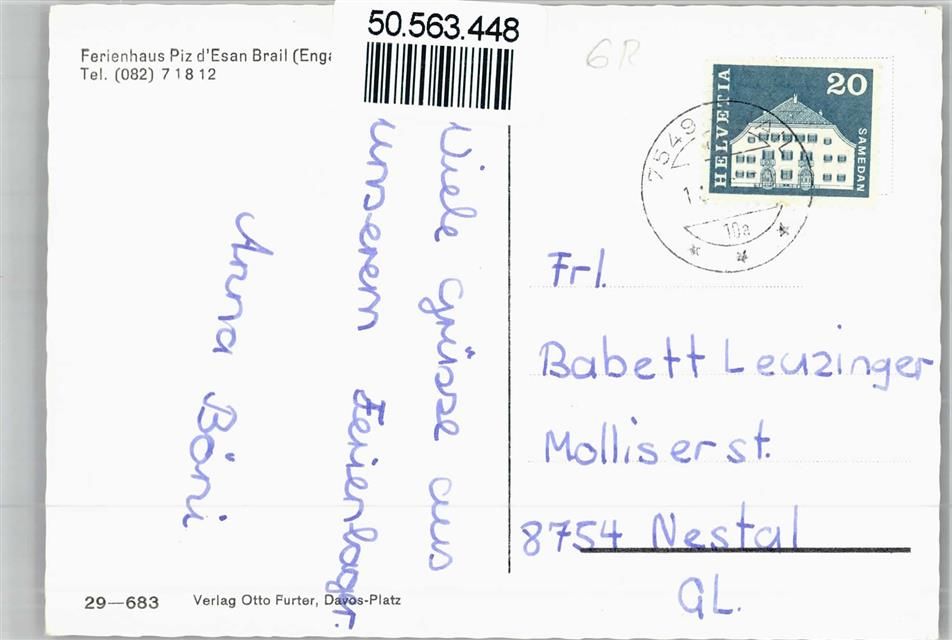 50.563.448
Ferienhaus Piz d'Esan Brail (Enga
Tel. (082) 7 18 12
6R
HELVETIA
20
SAMEDAN
7549
10a
Viele Grüsse aus
unserem Ferienlager.
Anna Böni
Frl.
Babett Leuzinger
Molliserst.
8754 Nestal
GL.
29—683
Verlag Otto Furter, Davos-Platz